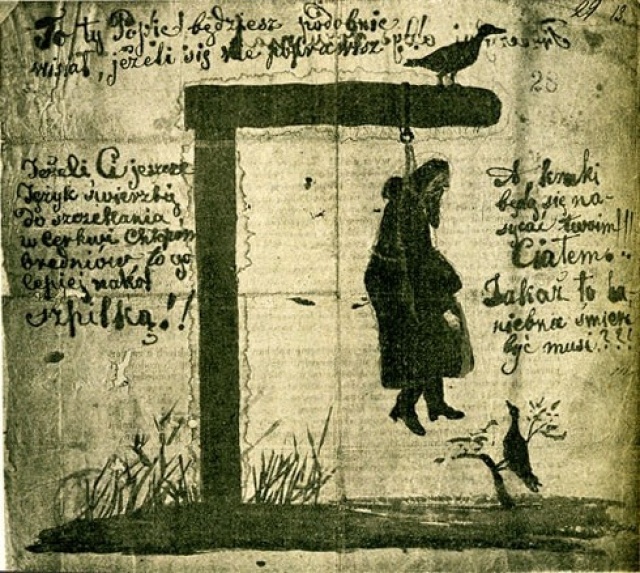 29 13.
To ty Popie! będziesz podobnie
wisiał, jeżeli się nie poprawisz
28
Jeżeli Ci jeszcze
Język świerzbi
do szczekania
w Cerkwi Chłopom
bredniów, to go
lepiej nakol
szpilką!!
A kruki
będą się na-
sycać twoim!!!
Ciałem..
Jakaż to ha-
niebna śmierć
być musi???